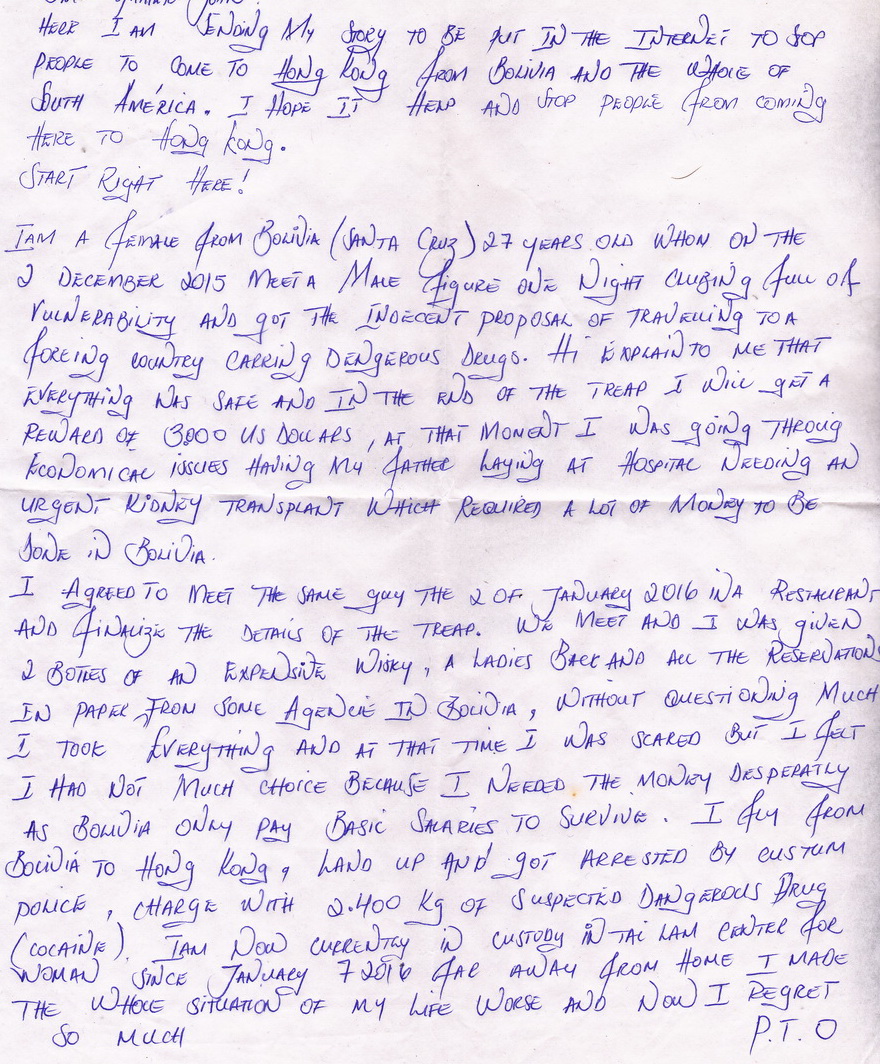 HERE I AM SENDING MY STORY TO BE PUT IN THE INTERNET TO STOP
PEOPLE TO COME TO HONG KONG FROM BOLIVIA AND THE WHOLE OF
SOUTH AMÉRICA. I HOPE IT HELP AND STOP PEOPLE FROM COMING
HERE TO HONG KONG.
START RIGHT HERE!
IAM A FEMALE FROM BOLIVIA (SANTA CRUZ) 27 YEARS OLD WHON ON THE
2 DECEMBER 2015 MEET A MALE FIGURE ONE NIGHT CLUBING FULL OF
VULNERABILITY AND GOT THE INDECENT PROPOSAL OF TRAVELLING TO A
FOREING COUNTRY CARRING DENGEROUS DRUGS. HI EXPLAIN TO ME THAT
EVERYTHING WAS SAFE AND IN THE END OF THE TREAP I WILL GET A
REWARD OF (3.000 US DOLLARS, AT THAT MOMENT I WAS GOING THROUIG
ECONOMICAL ISSUES HAVING MY FATHER LAYING AT HOSPITAL NEEDING AN
URGENT KIDNEY TRANSPLANT WHICH REQUIRED A LOT OF MONEY TO BE
DONE IN BOLIVIA.
I AGREED TO MEET THE SAME GUY THE 2 OF JANUARY 2016 IN A RESTAURANT
AND FINALIZE THE DETAILS OF THE TREAP. WE MEET AND I WAS GIVEN
2 BOTLES OF AN EXPENSIVE WISKY, A LADIES BACK AND ALL THE RESERVATIONS
IN PAPER FROM SOME AGENCIE IN BOLIVIA, WITHOUT QUESTIONING MUCH
I TOOK EVERYTHING AND AT THAT TIME I WAS SCARED BUT I FELT
I HAD NOT MUCH CHOICE BECAUSE I NEEDED THE MONEY DESPERATLY
AS BOLIVIA ONLY PAY BASIC SALARIES TO SURVIVE. I FLY FROM
BOLIVIA TO HONG KONG, LAND UP AND GOT ARRESTED BY CUSTUM
POLICE, CHARGE WITH 2.400 KG OF SUSPECTED DANGEROUS DRUG
(COCAINE). IAM NOW CURRENTLY IN CUSTODY IN TAI LAM CENTER FOR
WOMAN SINCE JANUARY 7 2016 FAR AWAY FROM HOME I MADE
THE WHOLE SITUATION OF MY LIFE WORSE AND NOW I REGRET
SO MUCH
P.T.O